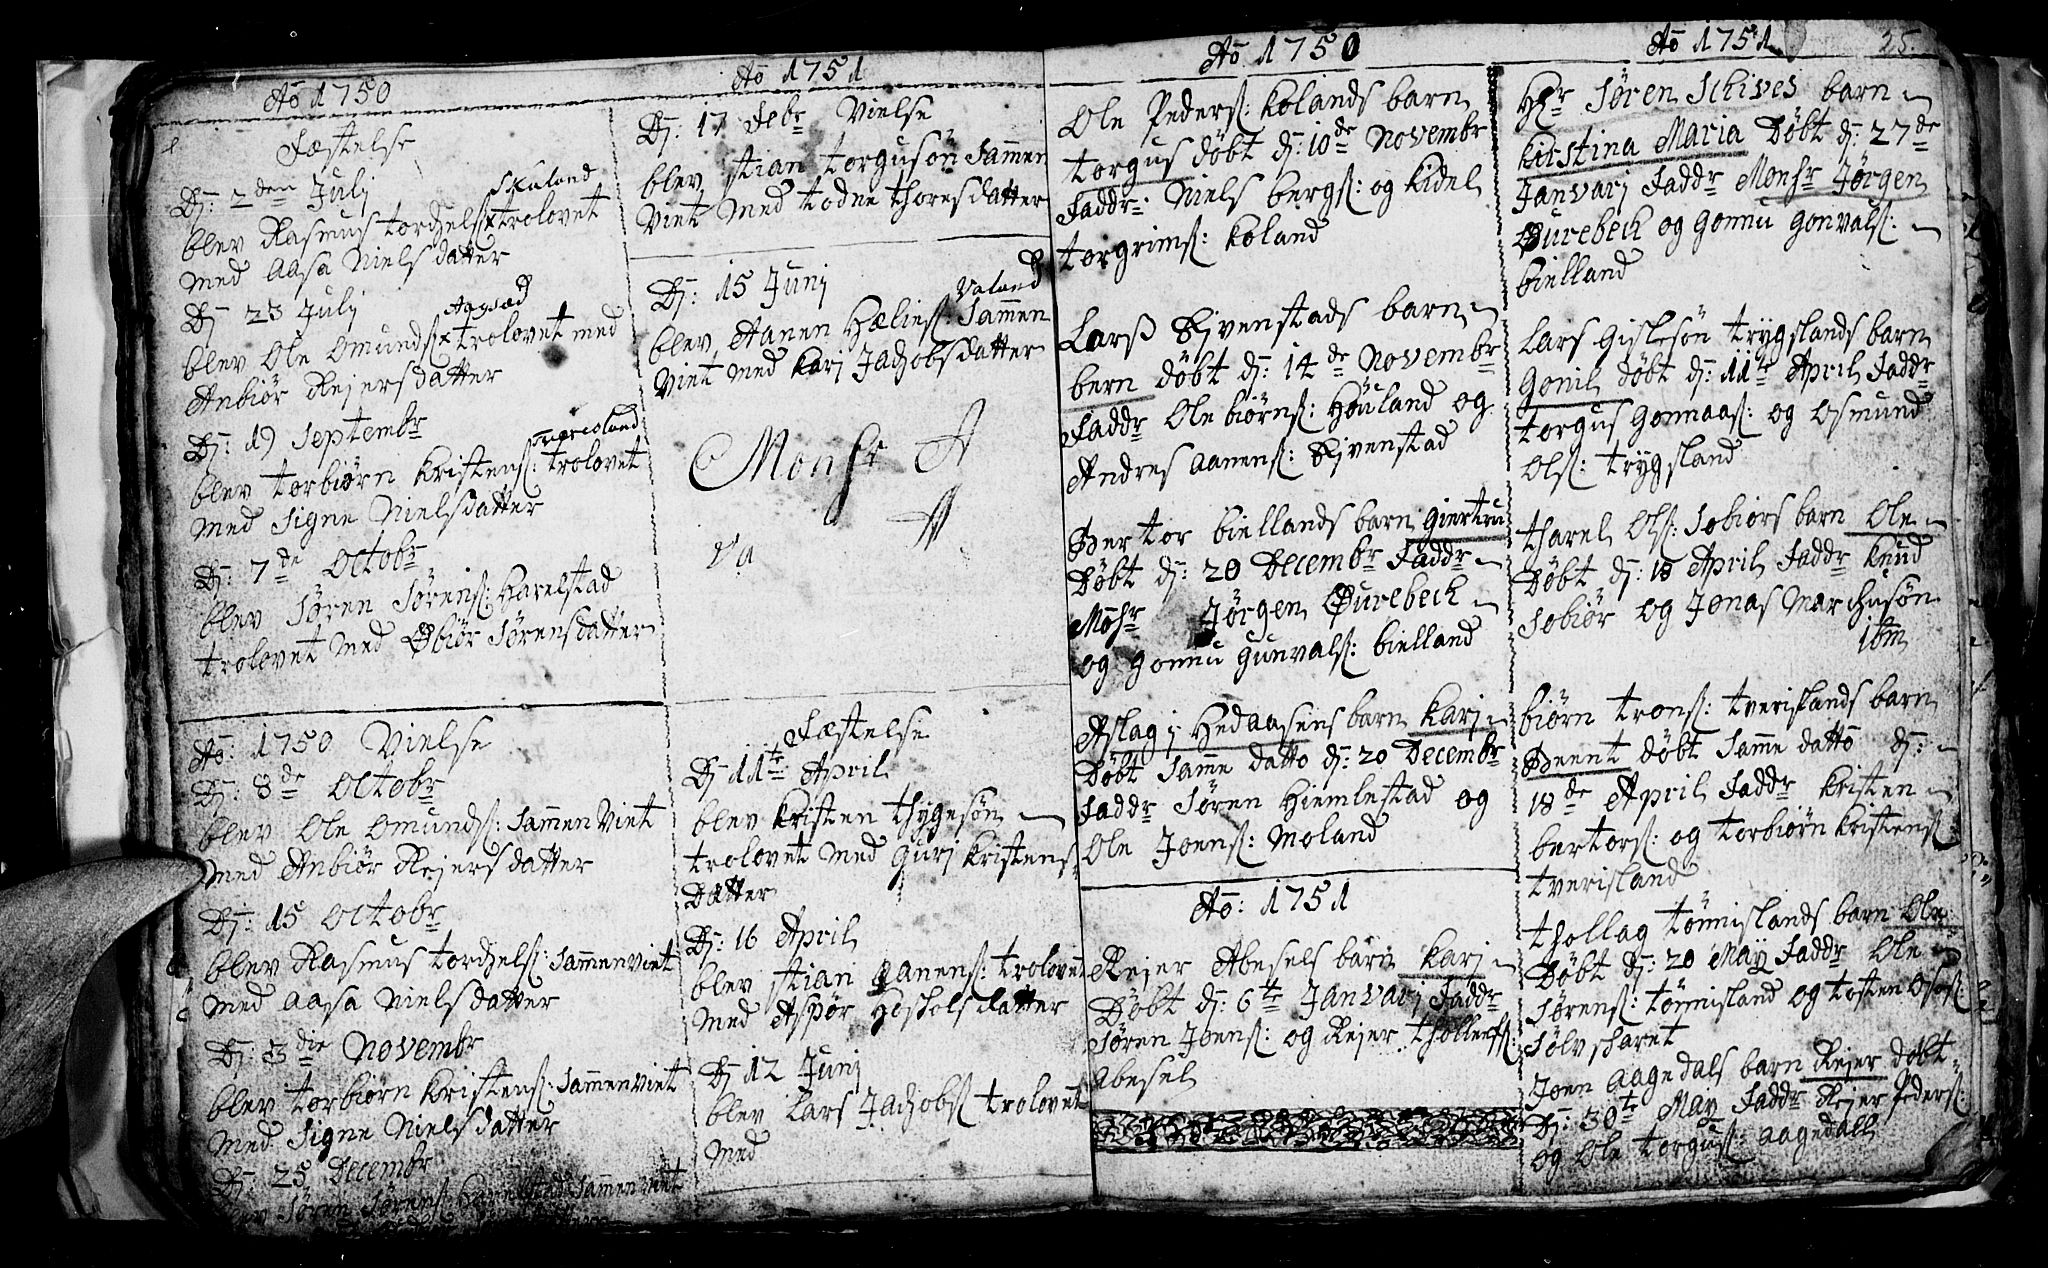 Aō 1750
Fæstelse
Dj: 2den Julj
Skuland
blev Rasmus tordzels: trolovet
med Aasa Niels datter
Dj 23 Julj
blev Ole Omunds: trolovet med
Anbiør Rejersdatter
Dj: 19 Septembr
blev torbiørn Kristens: trolovet
med Signe Nielsdatter
Dj: 7de Octobr
blev Søren Sørens: Harelstad
trolovet med Obiør Sørensdatter
Aō: 1750 Vielse
Dj: 8de Octobr
blev Ole Omunds: Sam̄en Viet
med Anbiør Rejersdatter
Dj: 15 Octobr
blev Rasmus tordzels: Sam̄enviet
med Aasa Nielsdatter
Dj: 3die Novembr
blev torbiørn Kristens: Sam̄enviet
med Signe Nielsdatter
Dj: 25 Decembr
blev Søren Sørens: Sam̄enviet
Aō 1751
Dj: 17 Febr Vielse
blev Stian torgusøn Sam̄en
Viet med todne thoresdatter
Dj: 15 Junj
Valand
blev Aanen Hælies: Sam̄en
Viet med Karj Jachobsdatter
Monsr A
A
Va
Fæstelse
Dj 11te April
blev Kristen thygesøn
trolovet med Gurj Kristens
Datter
Dj: 16 April
blev Stian Aanens: trolovet
med Aspør datter
Dj 12 Junj
blev Lars Jachobs trolovet
med
Aō 1750
Ole Peders: Kolands barn
torgus døbt dj: 10de Novembr
Faddr: Niels bergs: og Kidel
torgrims: Koland
Larß Øjvenstads barn
bern døbt dj: 14de Novembr
Faddr Ole biørns: Høuland og
Andres Aanens: Øjvenstad
Bertor biellands barn Giertru
Døbt dj: 20 Decembr Faddr
Mohr Jørgen Øurebeck
og Gonnu Gunvals: bielland
Aslag j Hedaasens barn Karj
Døbt Sam̄e datto dj: 20 Decembr
Faddr Søren Hiemlestad og
Ole Joens: Moland
Aō: 1751
Rejer Abesels barn Karj
Døbt dj: 6te Janvarj Faddr
Søren Joens: og Rejer tholleffs:
Abesel
Aō 1751
25.
Hr Søren Schives barn
Kirstina Maria Døbt dj: 27de
Janvarj Faddr Monsr Jørgen
Øurebeck og Gonnu Gonvals:
bielland
Lars Gislesøn trygslands barn
Gonil døbt dj: 11te April Faddr
torgus Gonnaas: og Osmund
Ols: trygsland
tharel Ols: Sobiørs barn Ole
Døbt dj: 18 April Faddr Knud
Sobiør og Jonas Marchusøn
ibm̄
biørn trons: tverislands barn
Beent døbt Sam̄e datto dj:
18de April Faddr Kristen
bertors: og torbiørn Kristens:
tverisland
thollag tøn̄islands barn Ole
Døbt dj: 20 May Faddr Ole
Sørens: tøn̄island og tosten Osos:
Sølvskaret
Joen Aagedals barn Rejer døbt
Dj: 30te May Faddr Rejer Peders:
og Ole torgus: Aagedall